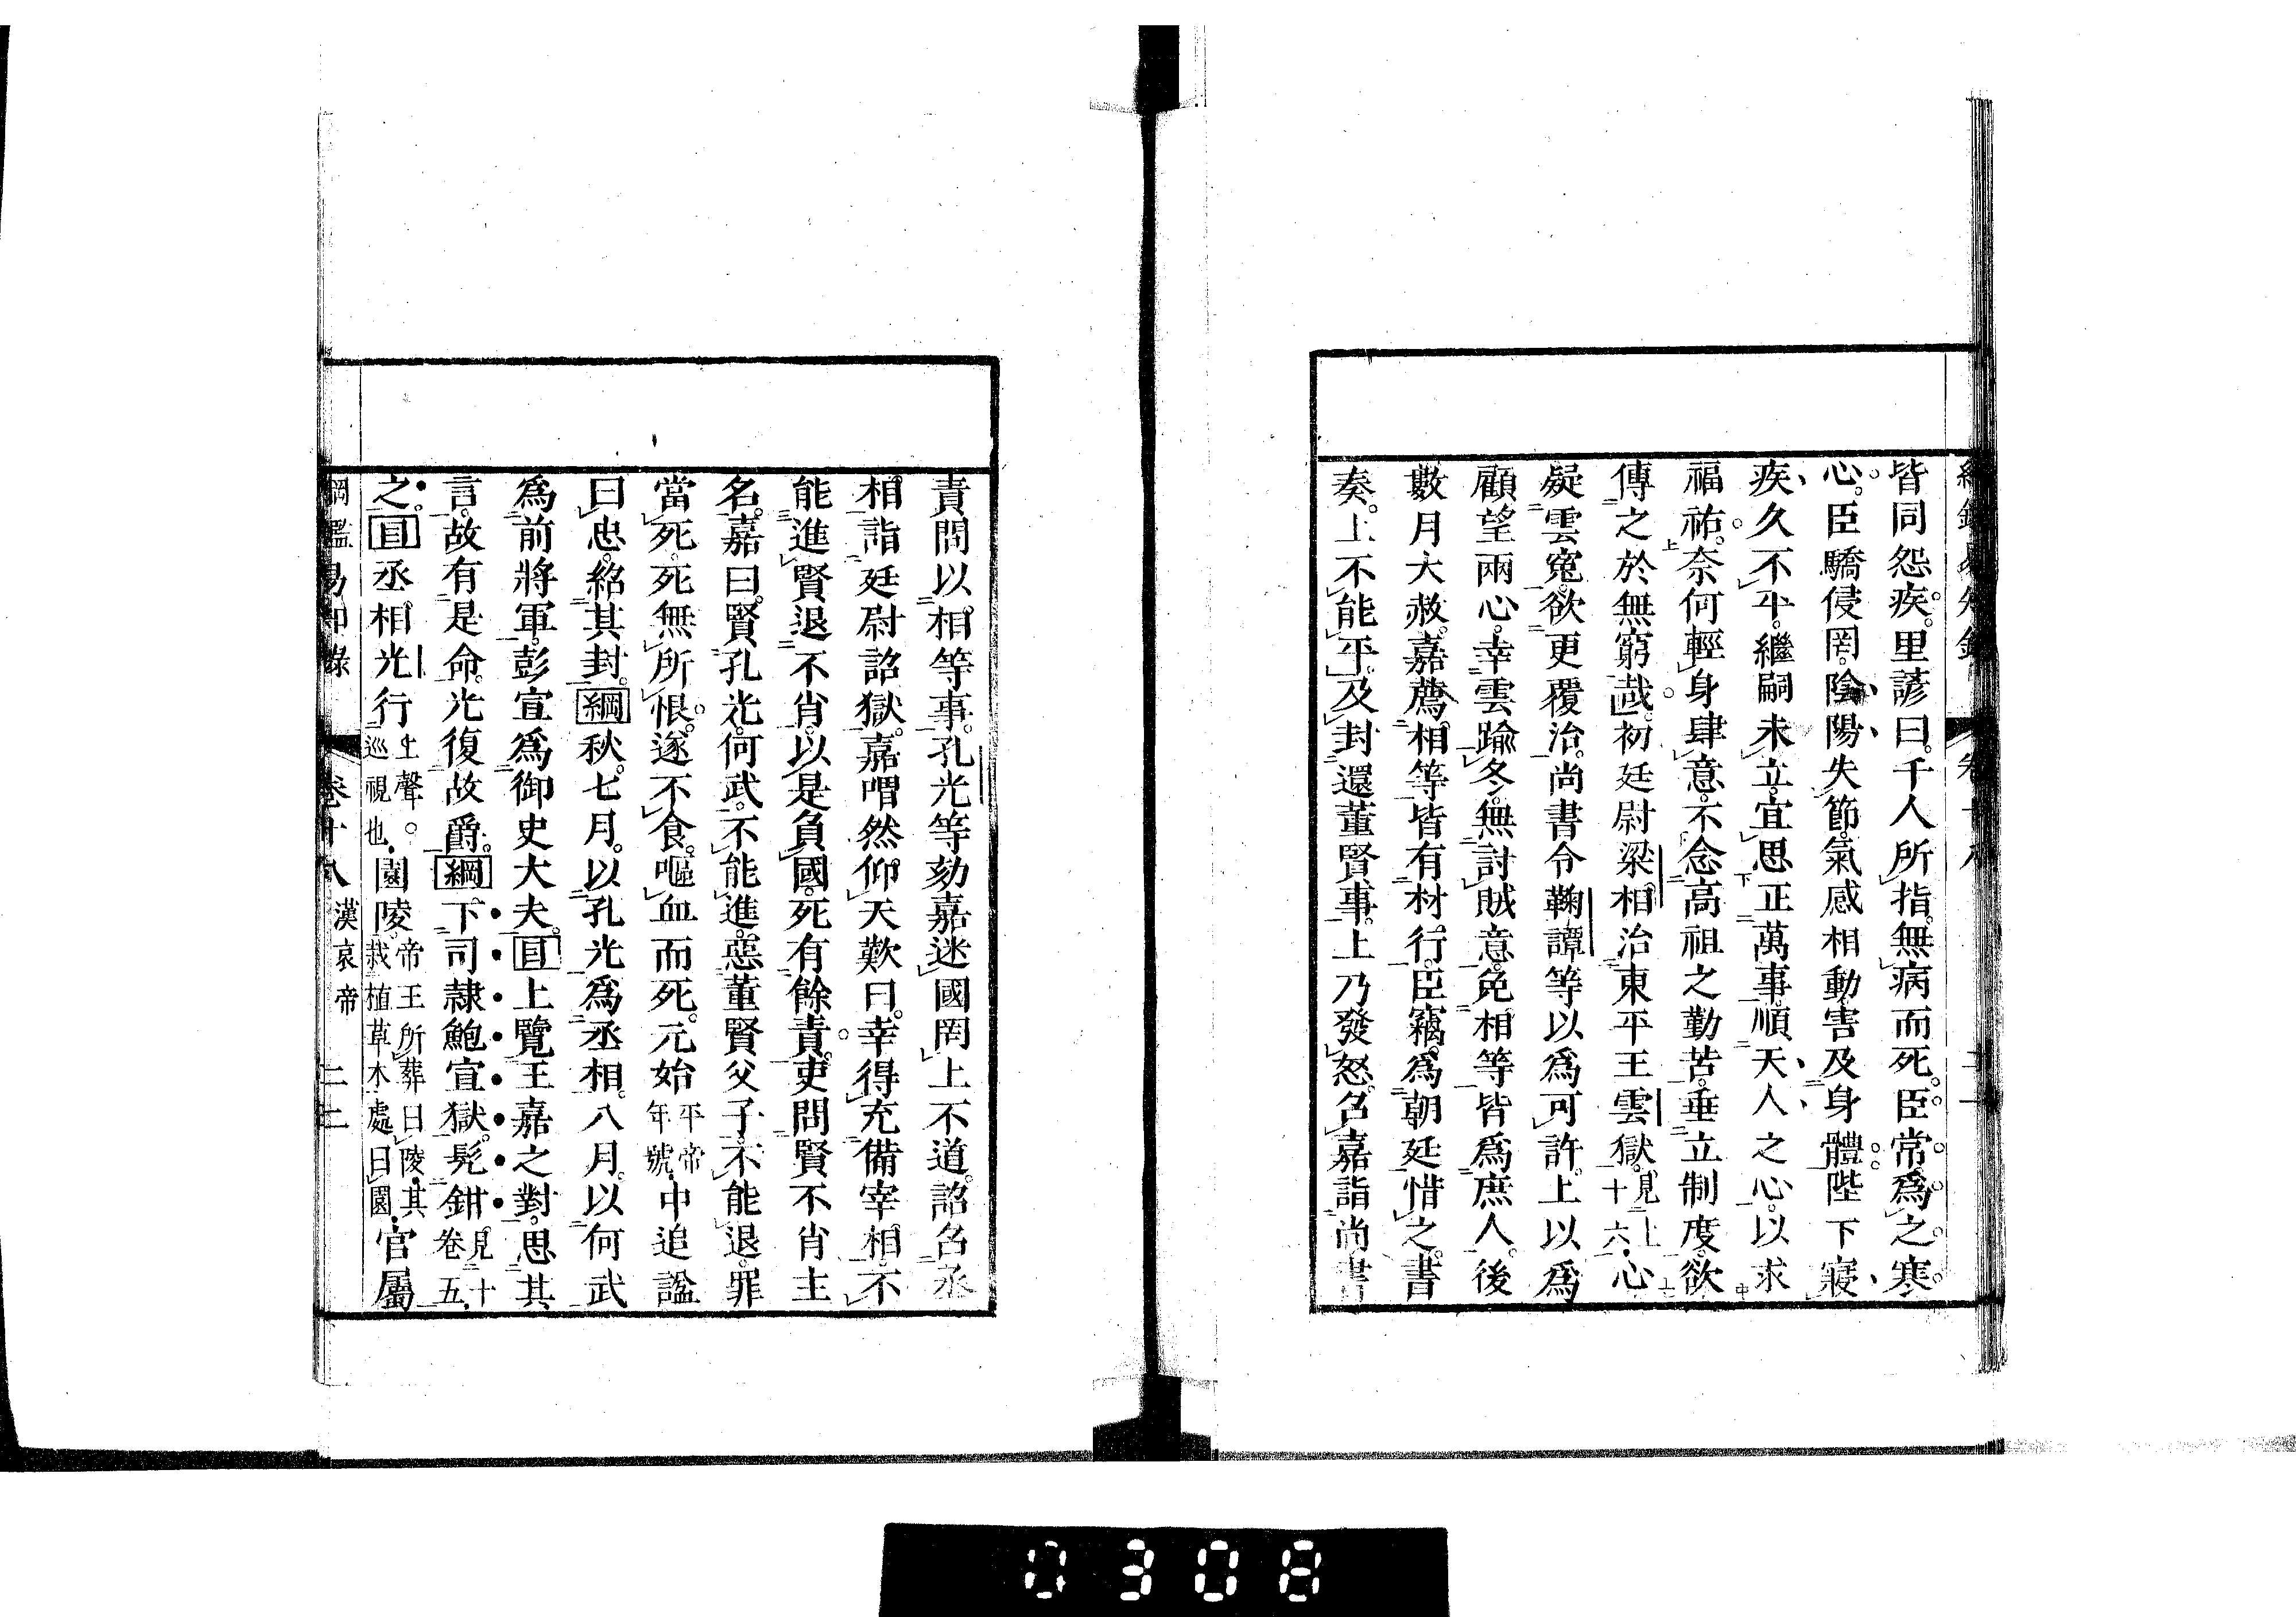 皆同怨疾。里諺曰。千人所指。無病而死。臣常爲之寒
心。臣驕侵罔。陰陽失節。氣感相動。害及身體。陛下寢
疾久不平。繼嗣未立。宜思正萬事。順天人之心。以求
福祐。奈何輕身肆意。不念高祖之勤苦。垂立制度。欲
傳之於無窮哉。初廷尉梁相治東平王雲獄。見上十六心
疑雲寃。欲更覆治。尚書令鞠譚等以爲可許。上以爲
顧望兩心。幸雲踰冬。無討賊意。免相等皆爲庶人。後
數月大赦。嘉薦相等皆有材行。臣竊爲朝廷惜之。書
奏。上不能平。及封還董賢事。上乃發怒。召嘉詣尚書
責問以相等事。孔光等劾嘉迷國罔上不道。詔召丞
相詣廷尉詔獄。嘉喟然仰天歎曰。幸得充備宰相。不
能進賢退不肖。以是負國。死有餘責。吏問賢不肖主
名。嘉曰。賢孔光。何武。不能進。惡董賢父子。不能退。罪
當死。死無所恨。遂不食。嘔血而死。元始平帝年號中追諡
曰忠。紹其封。綱秋七月。以孔光爲丞相。八月。以何武
爲前將軍。彭宣爲御史大夫。目上覽王嘉之對。思其
言。故有是命。光復故爵。綱下司隷鮑宣獄。髡鉗。見十卷五
之。目丞相光行去聲。巡視也園陵。帝王所葬曰陵。其栽植草木處曰園官屬
綱鑑易知錄 卷十八 漢哀帝 二二
0308